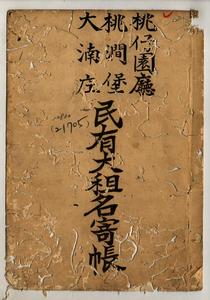 桃仔園廳
桃澗堡
大湳庄
民有大租名寄帳
(21705)